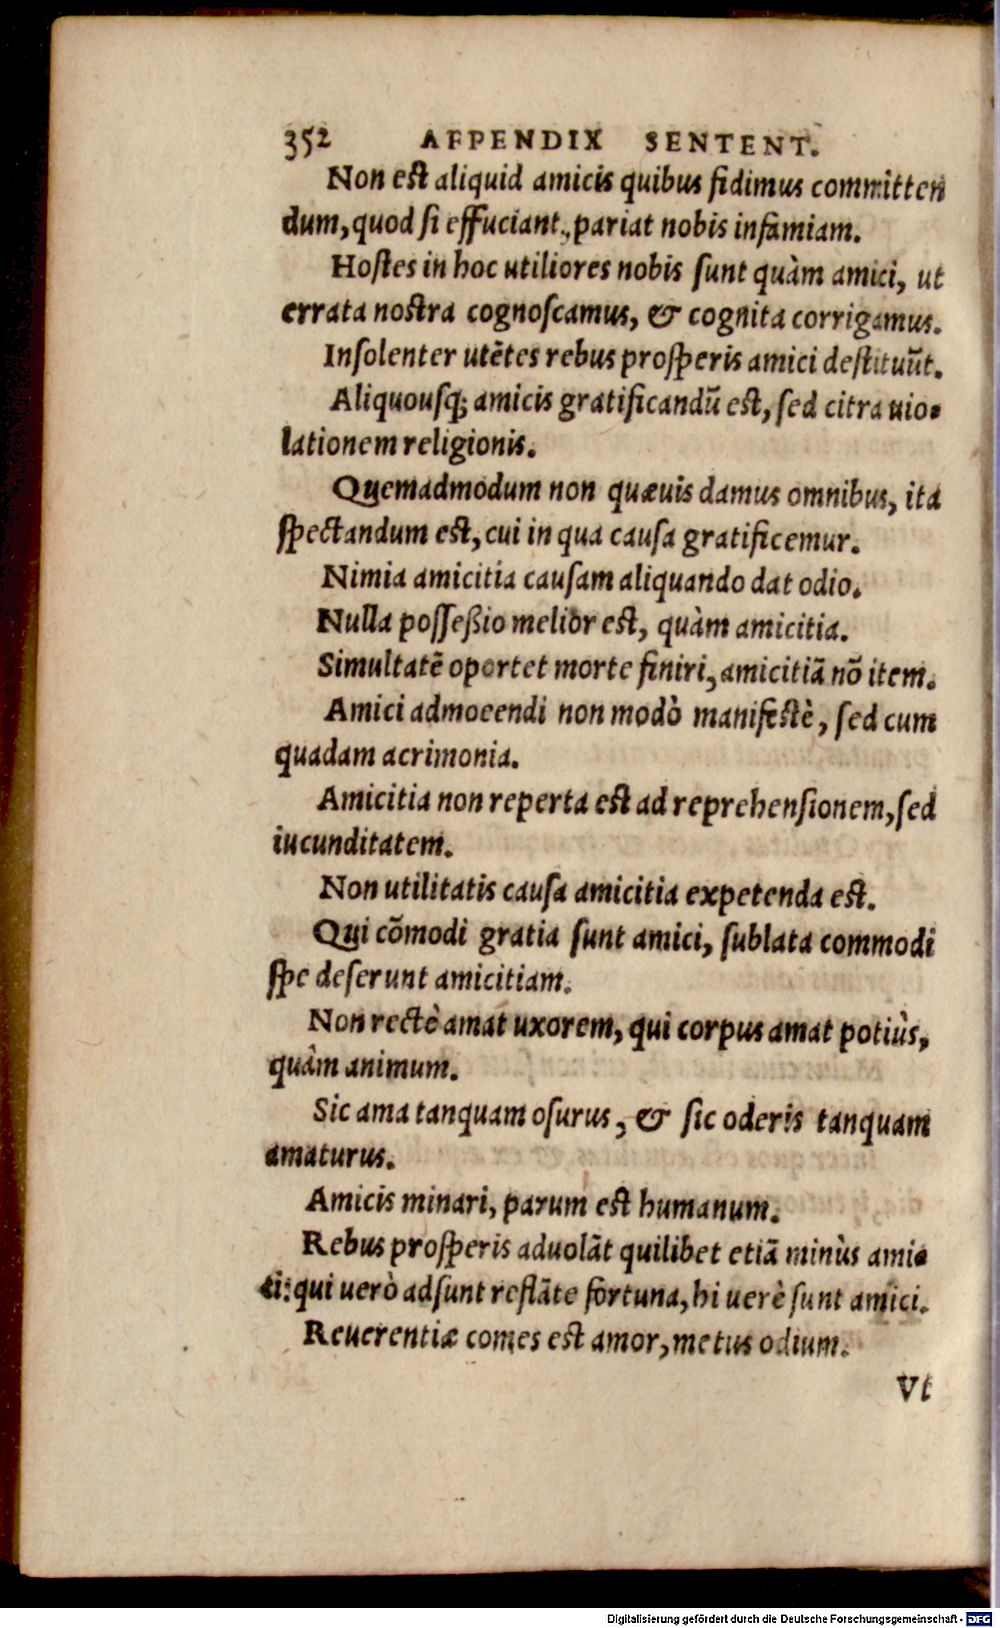 352 APPENDIX SENTENT.
Non est aliquid amicis quibus fidimus committen
dum, quod si effuciant, pariat nobis infamiam.
Hostes in hoc utiliores nobis sunt quàm amici, ut
errata nostra cognoscamus, & cognita corrigamus.
Insolenter utẽtes rebus prosperis amici destituũt.
Aliquousq; amicis gratificandũ est, sed citra uio-
lationem religionis.
Quemadmodum non quæuis damus omnibus, ita
spectandum est, cui in qua causa gratificemur.
Nimia amicitia causam aliquando dat odio.
Nulla posseßio melior est, quàm amicitia.
Simultatẽ oportet morte finiri, amicitiã nõ item.
Amici admoeendi non modò manifestè, sed cum
quadam acrimonia.
Amicitia non reperta est ad reprehensionem, sed
iucunditatem.
Non utilitatis causa amicitia expetenda est.
Qui cõmodi gratia sunt amici, sublata commodi
spe deserunt amicitiam.
Non rectè amat uxorem, qui corpus amat potiùs,
quàm animum.
Sic ama tanquam osurus, & sic oderis tanquam
amaturus.
Amicis minari, parum est humanum.
Rebus prosperis aduolãt quilibet etiã minùs ami-
ci: qui uerò adsunt reflãte fortuna, hi uerè sunt amici.
Reuerentiæ comes est amor, metus odium.
Vt
Digitalisierung gefördert durch die Deutsche Forschungsgemeinschaft - DFG